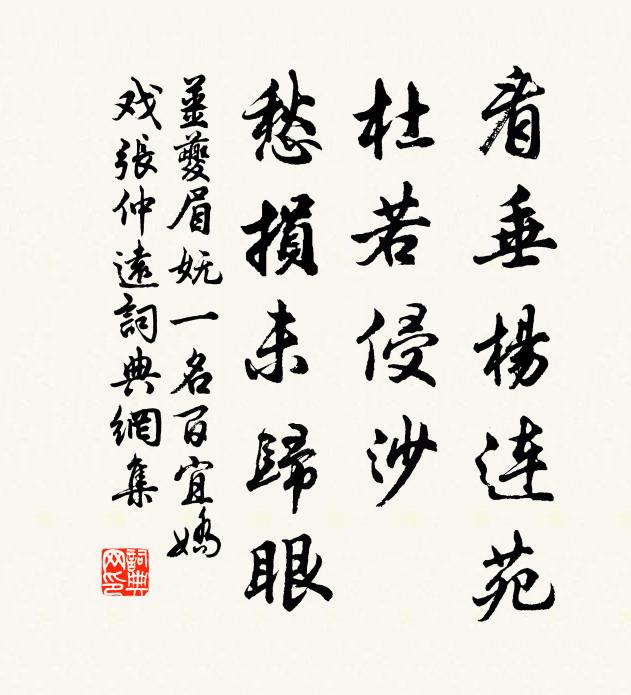 看垂楊連苑
杜若侵沙
愁損未歸眼
姜夔眉妩一名百宜嬌
戏張仲遠詞典網集
詞典网印